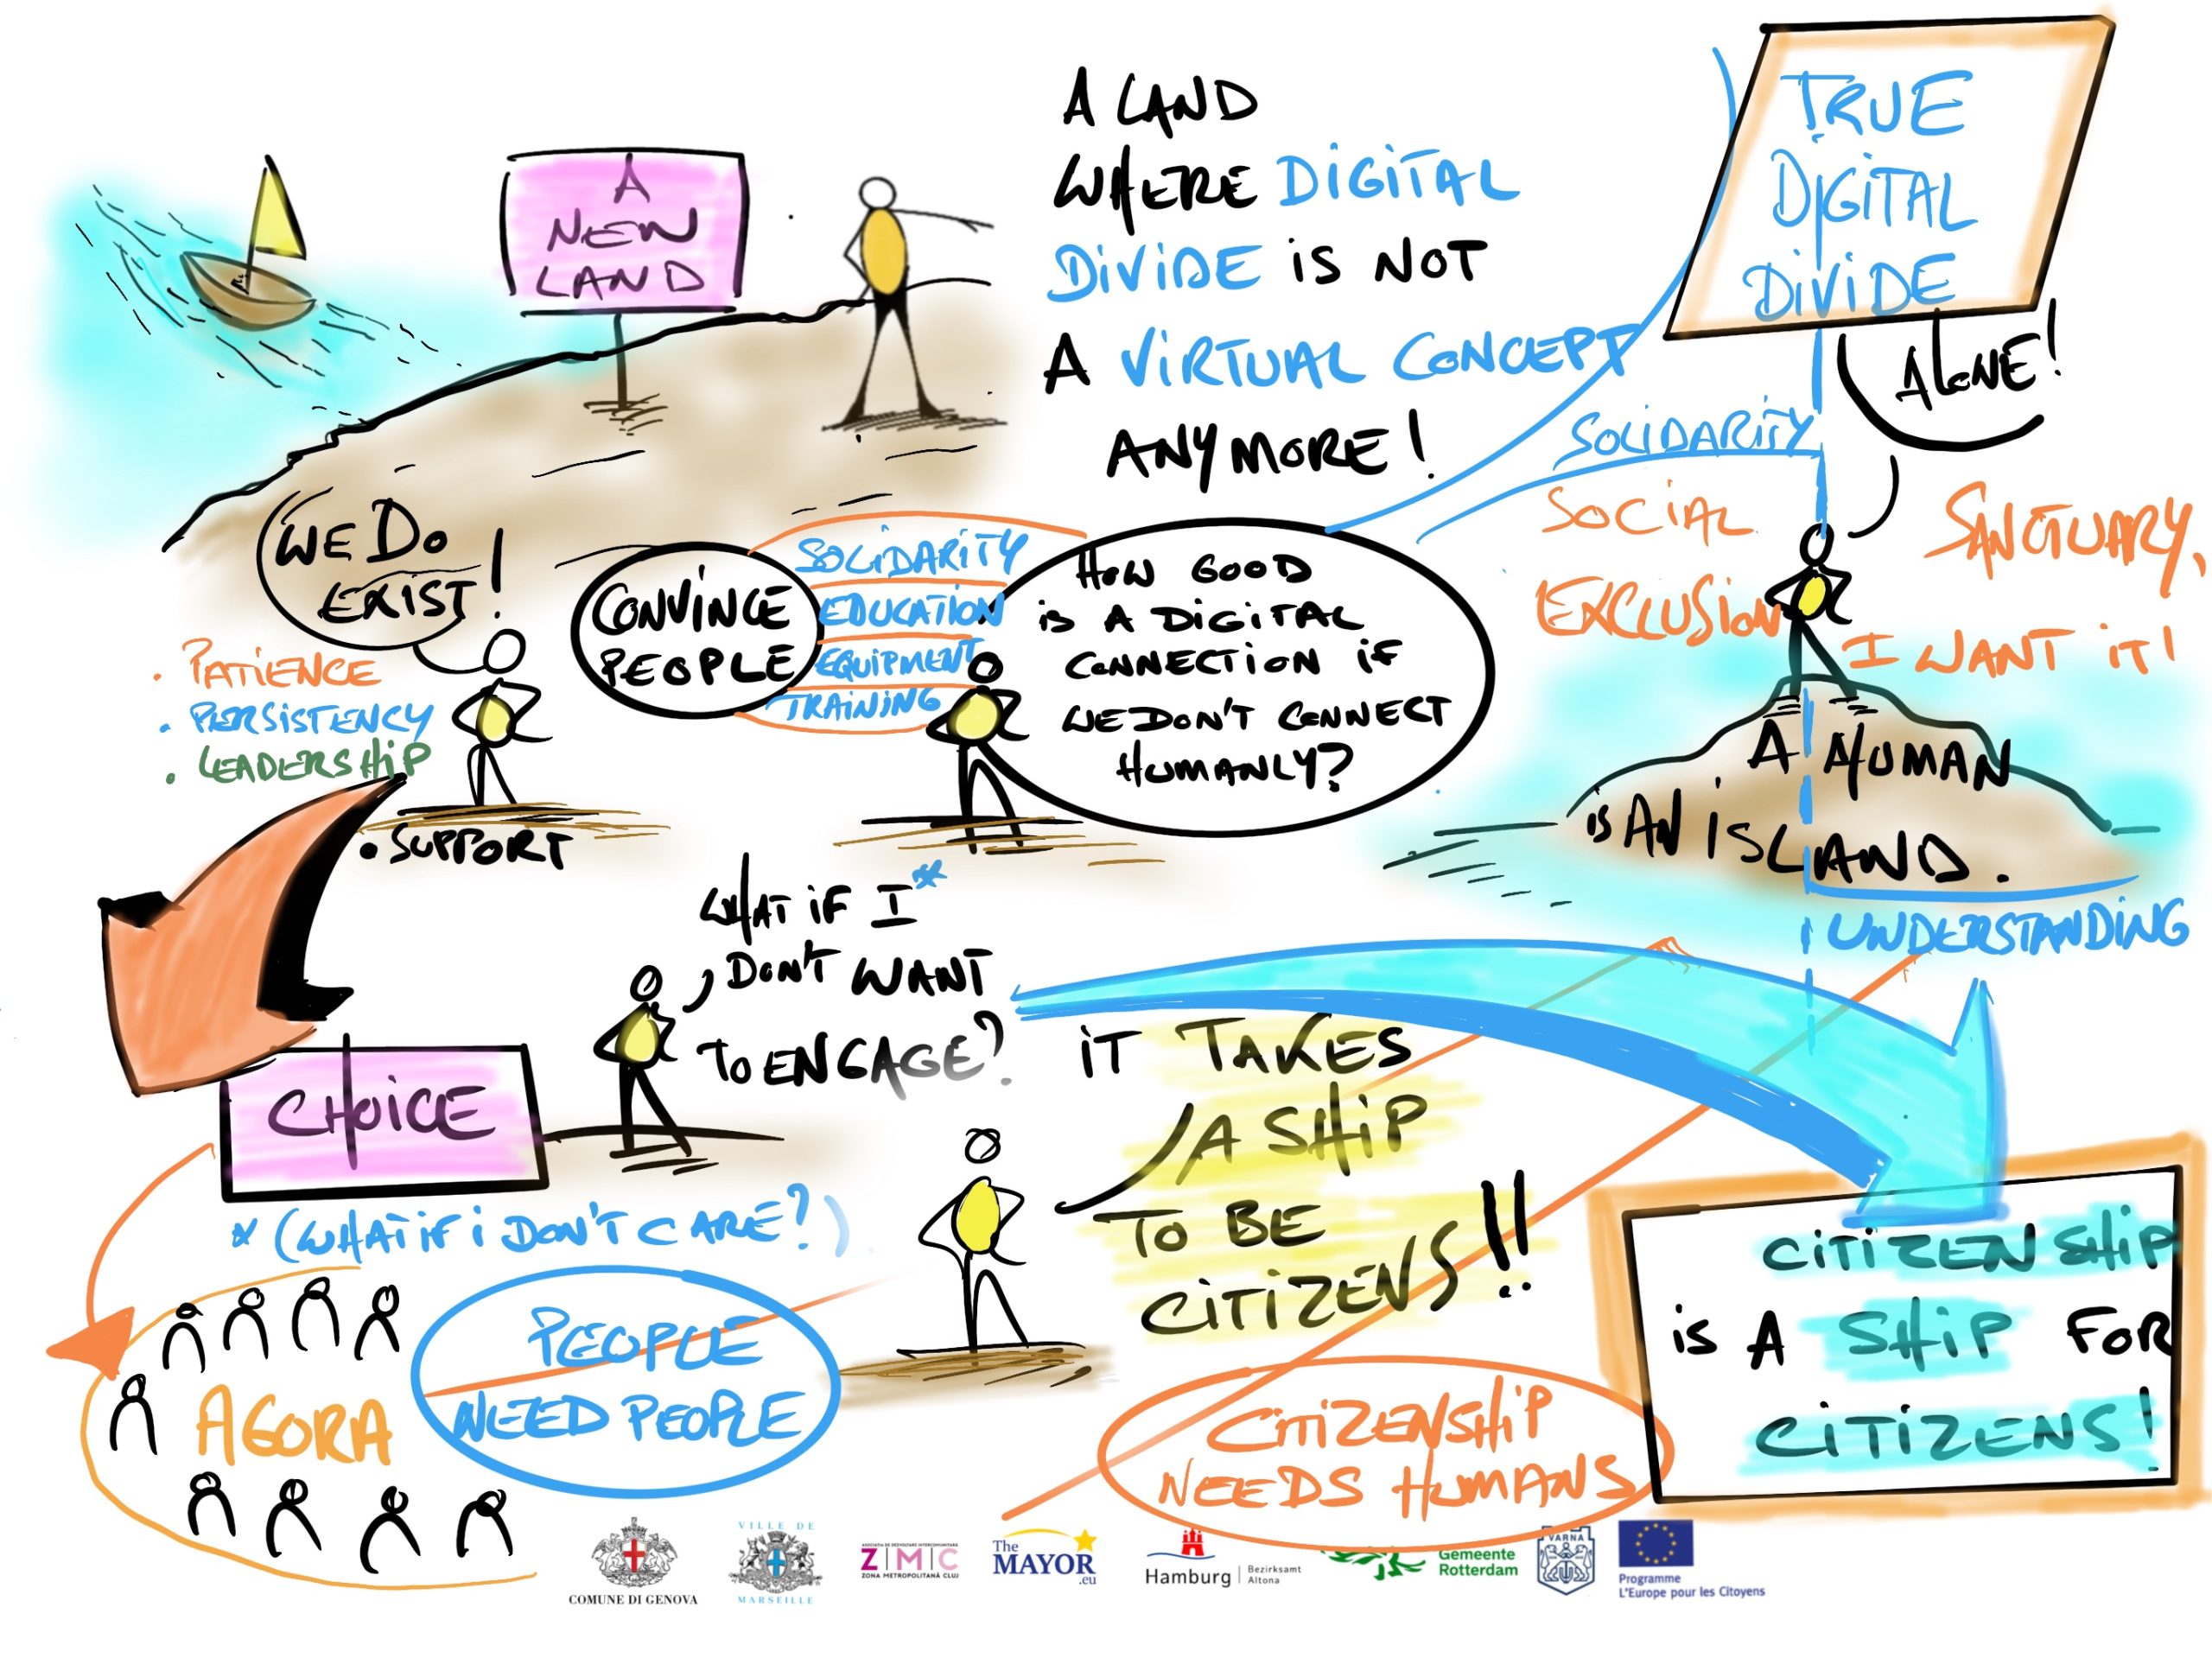 A
NEW
LAND
A LAND
WHERE DIGITAL
DIVIDE IS NOT
A VIRTUAL CONCEPT
ANYMORE!
TRUE
DIGITAL
DIVIDE
ALONE!
SOLIDARITY
SOCIAL
EXCLUSION
SANCTUARY,
I WANT IT!
A HUMAN
IS AN ISLAND.
UNDERSTANDING
WE DO
EXIST!
• PATIENCE
• PERSISTENCY
• LEADERSHIP
• SUPPORT
CONVINCE
PEOPLE
SOLIDARITY
EDUCATION
EQUIPMENT
TRAINING
HOW GOOD
IS A DIGITAL
CONNECTION IF
WE DON'T CONNECT
HUMANLY?
WHAT IF I*
DON'T WANT
TO ENGAGE?
CHOICE
* (WHAT IF I DON'T CARE?)
IT TAKES
A SHIP
TO BE
CITIZENS!!
CITIZENSHIP
IS A SHIP FOR
CITIZENS!
AGORA
PEOPLE
NEED PEOPLE
CITIZENSHIP
NEEDS HUMANS
COMUNE DI GENOVA
VILLE DE
MARSEILLE
ASOCIAȚIA DE DEZVOLTARE INTERCOMUNITARĂ
Z|M|C
ZONA METROPOLITANĂ CLUJ
The
MAYOR
.eu
Hamburg | Bezirksamt
Altona
Gemeente
Rotterdam
VARNA
Programme
L'Europe pour les Citoyens